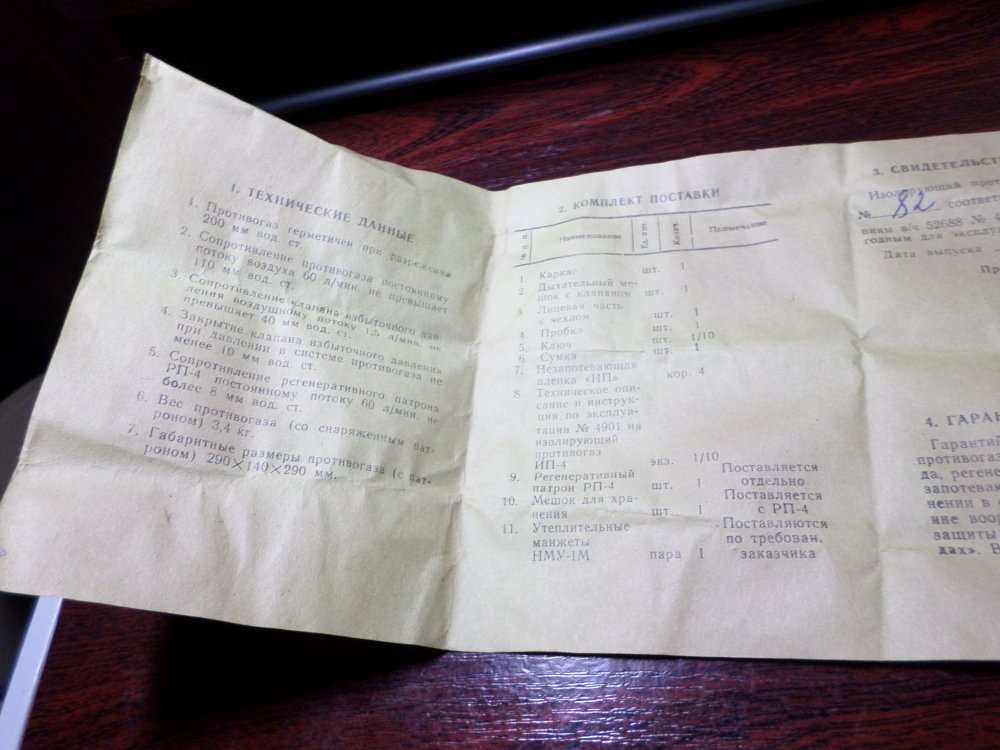 1. ТЕХНИЧЕСКИЕ ДАННЫЕ
1. Противогаз герметичен при разрежении
200 мм вод. ст.
2. Сопротивление противогаза постоянному
потоку воздуха 60 л/мин. не превышает
110 мм вод. ст.
3. Сопротивление клапана избыточного дав-
ления воздушному потоку 1,5 л/мин. не
превышает 40 мм вод. ст.
4. Закрытие клапана избыточного давления
при давлении в системе противогаза не
менее 10 мм вод. ст.
5. Сопротивление регенеративного патрона
РП-4 постоянному потоку 60 л/мин. не
более 8 мм вод. ст.
6. Вес противогаза (со снаряженным пат-
роном) 3,4 кг.
7. Габаритные размеры противогаза (с пат-
роном) 290×140×290 мм.
2. КОМПЛЕКТ ПОСТАВКИ
№ п. п. Наименование Ед. изм. Колич. Примечание
1. Каркас шт. 1
2. Дыхательный ме-
шок с клапаном шт. 1
3. Лицевая часть
с чехлом шт. 1
4. Пробка шт. 1
5. Ключ шт. 1/10
6. Сумка шт. 1
7. Незапотевающая
пленка «НП» кор. 4
8. Техническое опи-
сание и инструк-
ция по эксплуа-
тации № 4901 на
изолирующий
противогаз
ИП-4 экз. 1/10
9. Регенеративный Поставляется
патрон РП-4 шт. 1 отдельно
10. Мешок для хра- Поставляется
нения шт. 1 с РП-4
11. Утеплительные Поставляются
манжеты по требован.
НМУ-1М пара 1 заказчика
3. СВИДЕТЕЛЬСТ
Изолирующий про
№ 82 соответ
виям в/ч 52688 №
годным для эксплуа
Дата выпуска
Пр
4. ГАРАН
Гарантий
противогаз
да, регене
запотеваю
нении в
ние воор
защиты
дах». В